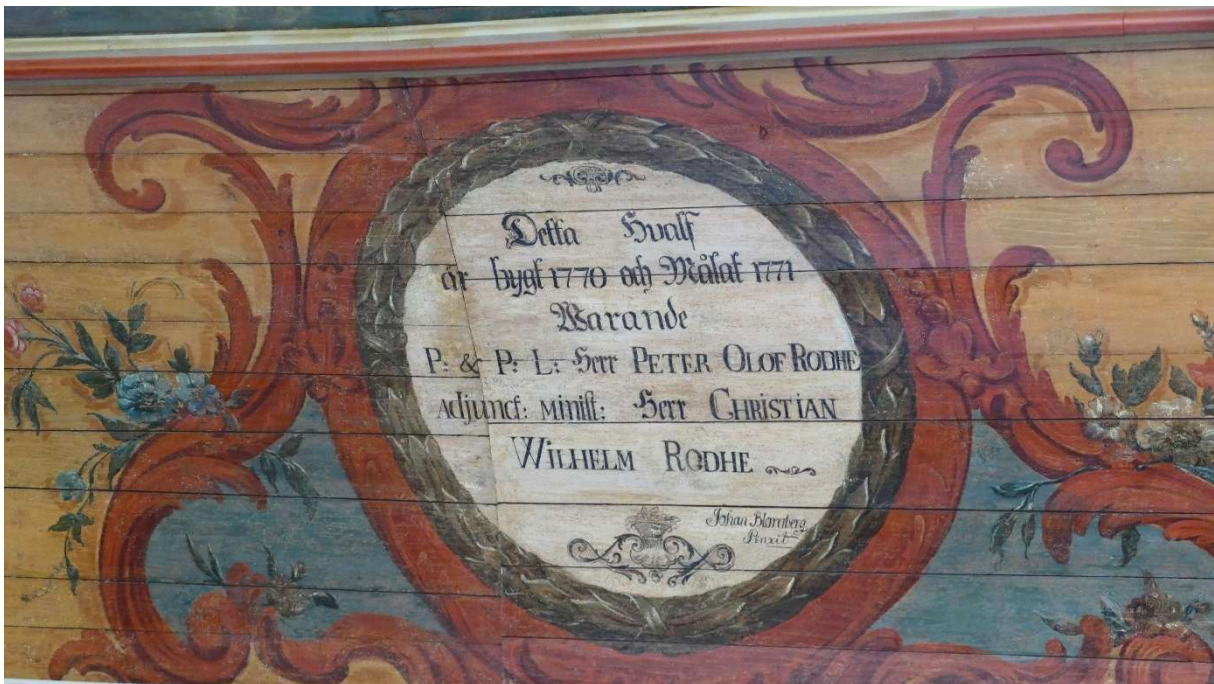 Detta Hvalf
är bygt 1770 och Målat 1771
Warande
P: & P: L: Herr PETER OLOF RODHE
Adjunct: Minist: Herr CHRISTIAN
WILHELM RODHE
Johan Blomberg
Pinxit